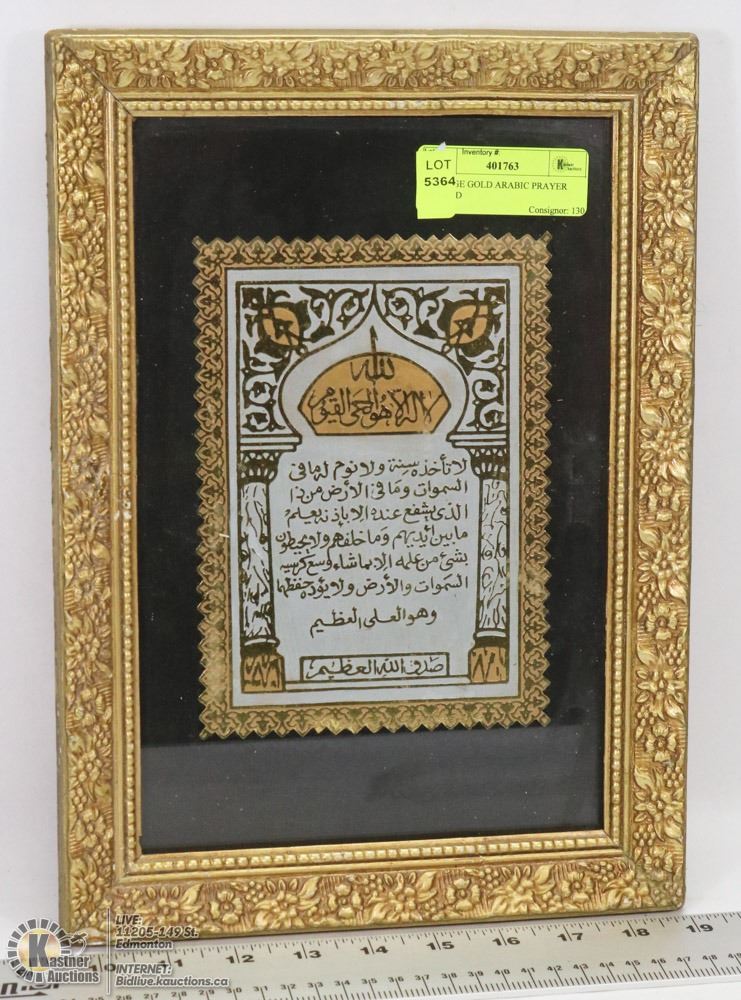 Inventory #:
LOT 401763
5364 GE GOLD ARABIC PRAYER
D
Consignor: 130
الله
لا إله إلا هو الحي القيوم
لا تأخذه سنة ولا نوم له ما في
السموات وما في الأرض من ذا
الذي يشفع عنده إلا بإذنه يعلم
ما بين أيديهم وما خلفهم ولا يحيطون
بشئ من علمه إلا بما شاء وسع كرسيه
السموات والأرض ولا يؤده حفظهما
وهو العلى العظيم
صدق الله العظيم
LIVE:
11205-149 St.
Edmonton
INTERNET:
Bidlive.kauctions.ca
Kastner
Auctions
10 11 12 13 14 15 16 17 18 19